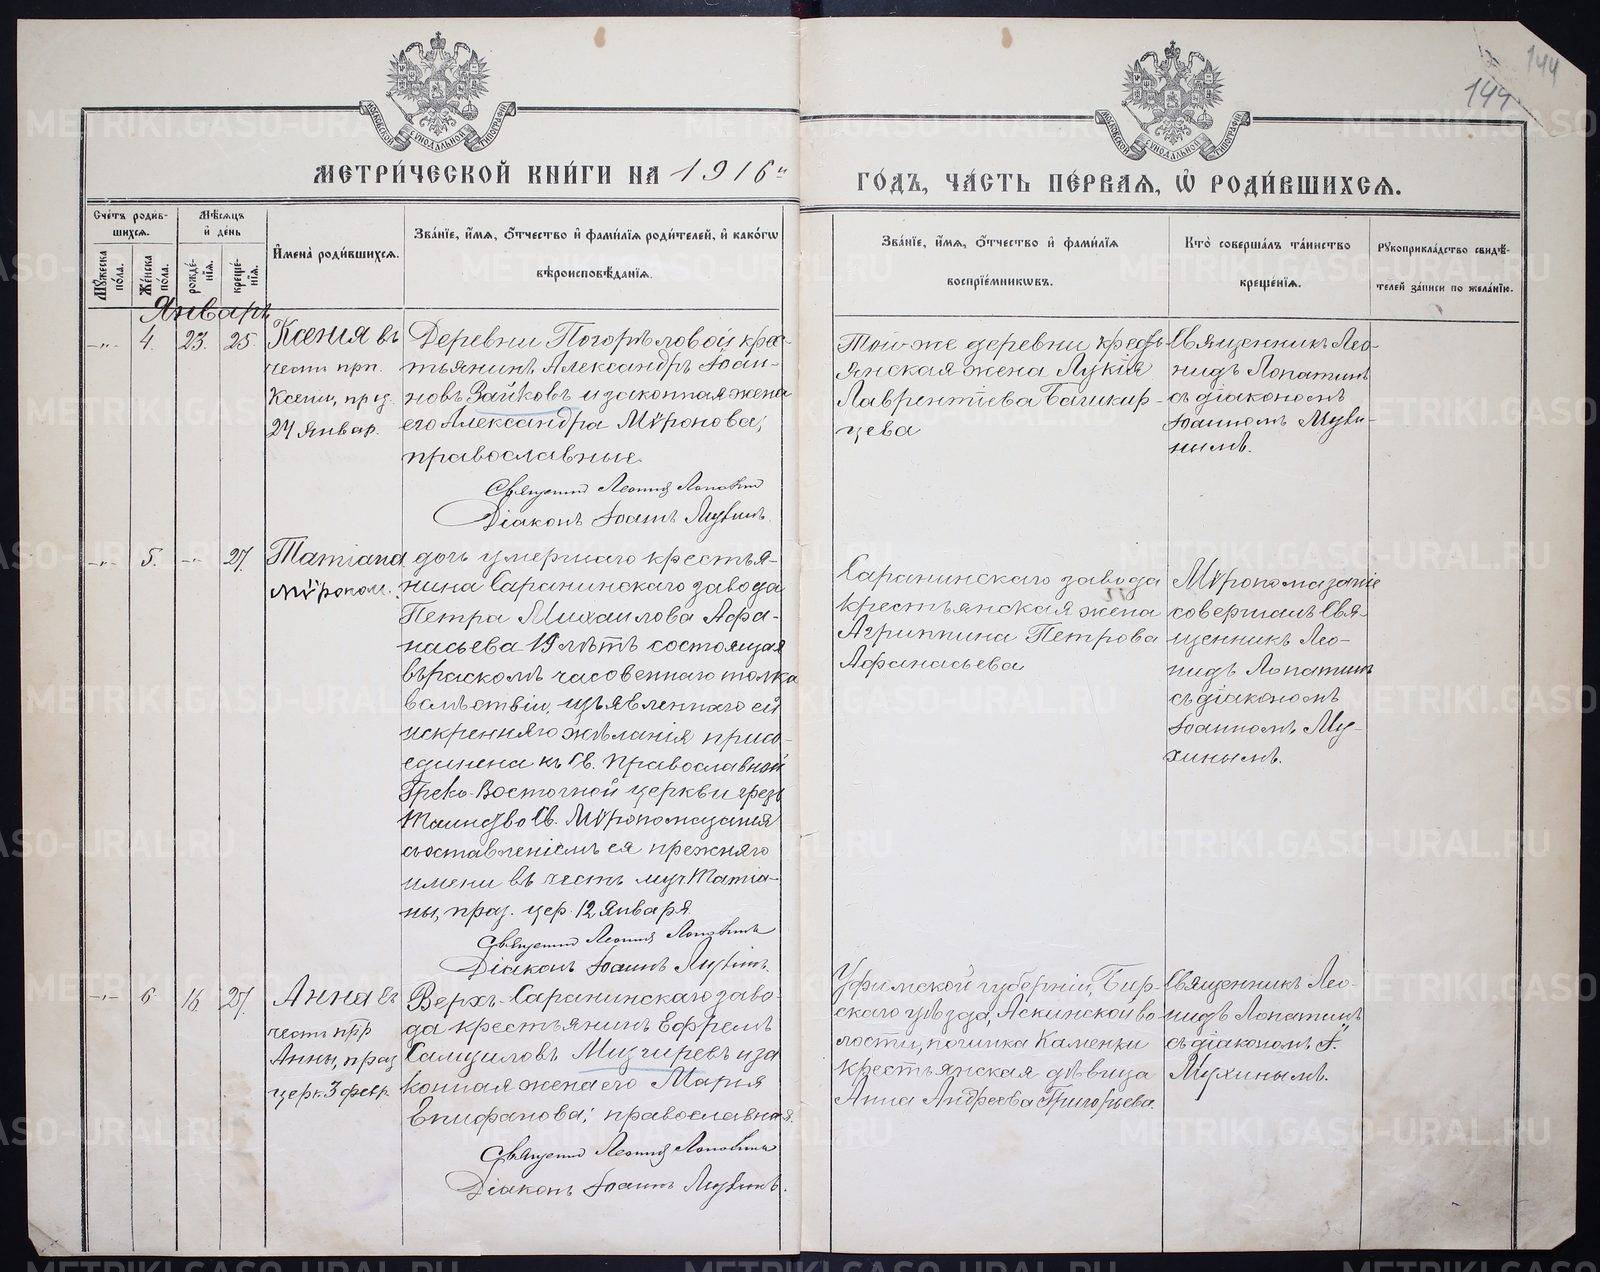 144
144
МЕТРИ́ЧЕСКОЙ КНИ́ГИ НА 1916й
ГО́ДЪ, ЧА́СТЬ ПЕ́РВАѦ, Ѽ РОДИ́ВШИХСѦ.
Сче́тъ роди́в-
шихсѧ.
Мꙋ́жеска по́ла.
Же́нска по́ла.
Мѣ́сѧцъ
и҆ де́нь
рожде́-
нїѧ.
креще́-
нїѧ.
И҆мена̀ роди́вшихсѧ.
Зва́нїе, и҆́мѧ, ѻ҆́тчество и҆ фами́лїѧ роди́телей, и҆ како́гѡ
вѣроисповѣ́данїѧ.
Зва́нїе, и҆́мѧ, ѻ҆́тчество и҆ фами́лїѧ
воспрїе́мникѡвъ.
Кто̀ соверша́лъ та́инство
креще́нїѧ.
Рꙋкоприкла́дство свидѣ́-
телей за́писи по жела́нїю.
Январь
-"- 4. 23. 25.
Ксенія въ
честь прп.
Ксеніи, праз.
24 Январ.
Деревни Погорѣловой крес-
тьянинъ Александръ Іоан-
новъ Зайковъ и законная жена
его Александра Мѵронова;
православные
Священник Леонид Лопатин
Діаконъ Іоаннъ Мухинъ.
Той-же деревни кресть-
янская жена Лукія
Лаврентіева Башкир-
цева
Священникъ Лео-
нидъ Лопатинъ
съ діакономъ
Іоанномъ Мухи-
нымъ.
-"- 5. -"- 27.
Татіана
мѵропом.
дочь умершаго крестья-
нина Саранинскаго завода
Петра Михаилова Афа-
насьева 19 лѣтъ состоящая
въ расколѣ часовеннаго толка
вслѣдствіи, изъявленнаго ей
искренняго желанія присо-
единена къ Св. Православной
Греко-Восточной церкви чрезъ
Таинство Св. Мѵропомазанія
съ оставленіемъ ея прежняго
имени въ честь муч. Татіа-
ны, праз. цер. 12 Января
Священник Леонид Лопатинъ
Діаконъ Іоаннъ Мухинъ.
Саранинскаго завода
крестьянская жена
Агриппина Петрова
Афанасьева
Мѵропомазаніе
совершалъ Свя-
щенникъ Лео-
нидъ Лопатинъ
съ діакономъ
Іоанномъ Му-
хинымъ.
-"- 6. 16. 27.
Анна въ
честь прр.
Анны, праз.
церк. 3 февр.
Верхъ-Саранинскаго заво-
да крестьянинъ Ефремъ
Самуиловъ Мизгиревъ и за
конная жена его Марія
Епифанова; православная.
Священник Леонид Лопатинъ
Діаконъ Іоаннъ Мухинъ.
Уфимской губерніи, Бир-
скаго уѣзда, Аскинской во-
лости, починка Каменки
крестьянская дѣвица
Анна Андреева Григорьева.
Священникъ Лео-
нидъ Лопатинъ
съ діакономъ І.
Мухинымъ.
METRIKI.GASO-URAL.RU